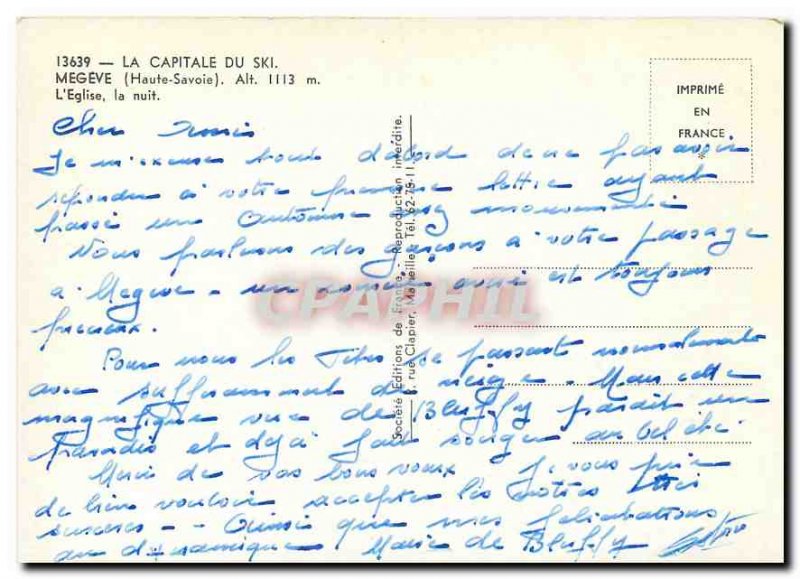 13639 — LA CAPITALE DU SKI.
MEGEVE (Haute-Savoie). Alt. 1113 m.
L'Eglise, la nuit.
IMPRIMÉ
EN
FRANCE
Société Editions de France - Reproduction interdite.
rue Clapier, Marseille Tél. 62-79-11
CPAPHIL
Cher
Je m'excuse tout d'abord de ne pas avoir
répondu à votre première lettre ayant
passé un Automne assez mouvementé
Nous parlerons des garçons à votre passage
à Megève - un conseil avisé est toujours
précieux.
Pour nous les Fêtes se passent normalement
avec suffisamment de neige - Mais cette
magnifique vue de Bluffy paraît un
paradis et déjà fait songer au bel été.
Merci de vos bons voeux. Je vous prie
de bien vouloir accepter les nôtres très
sincères - - Ainsi que mes félicitations
au dynamique Maire de Bluffy